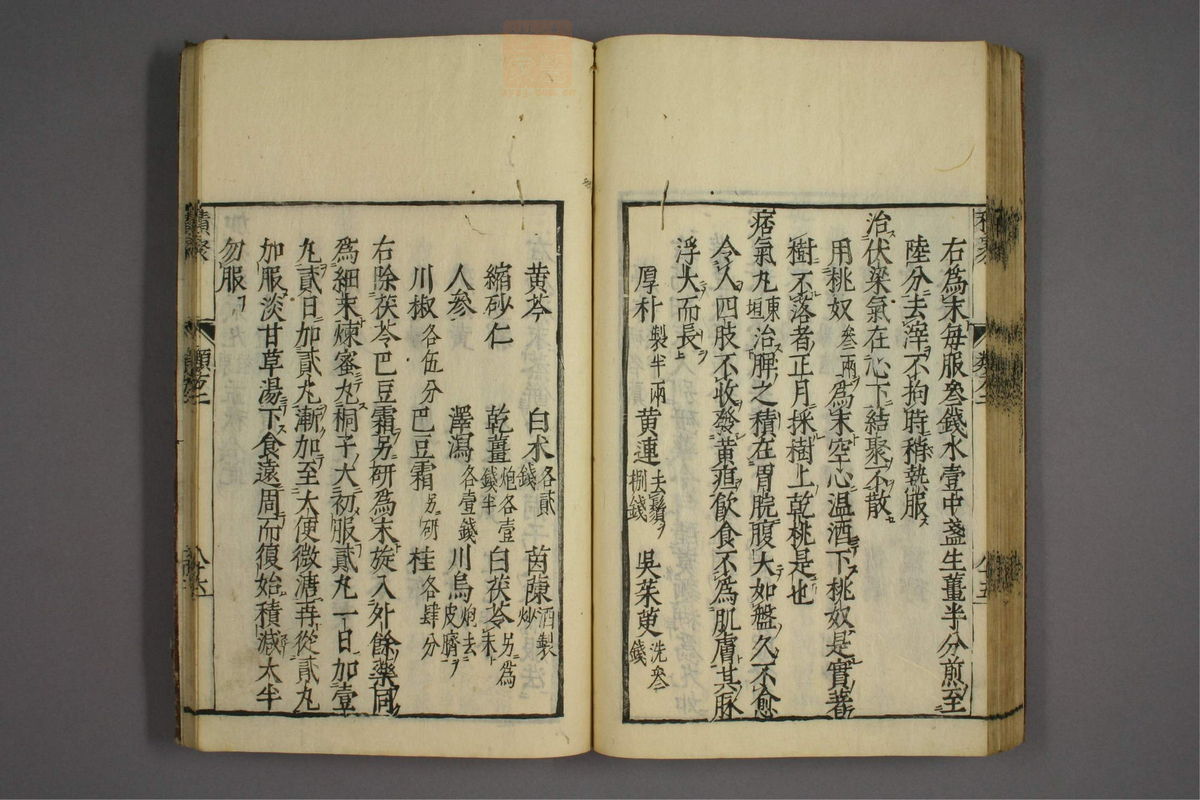 右為末每服叄錢水壹中盞生薑半分煎至
陸分去滓不拘時稍熱服
治伏梁氣在心下結聚不散
用桃奴叄兩為末空心温酒下桃奴是實著
樹不落者正月採樹上乾桃是也
痞氣丸東垣治脾之積在胃脘腹大如盤久不愈
令人四肢不收發黄疸飲食不為肌膚其脉
浮大而長
厚朴製半兩 黄連去鬚捌錢 吳茱萸洗叄錢
黄芩 白朮各貳錢 茵蔯酒製炒
縮砂仁 乾薑炮各壹錢半 白茯苓另為末
人參 澤瀉各壹錢 川烏炮去皮臍
川椒各伍分 巴豆霜另研 桂各肆分
右除茯苓巴豆霜另研為末旋入外餘藥同
為細末煉蜜丸桐子大初服貳丸一日加壹
丸貳日加貳丸漸加至大便微溏再從貳丸
加服淡甘草湯下食遠周而復始積減太半
勿服
積聚
類方二
八十六
類方二
八十五